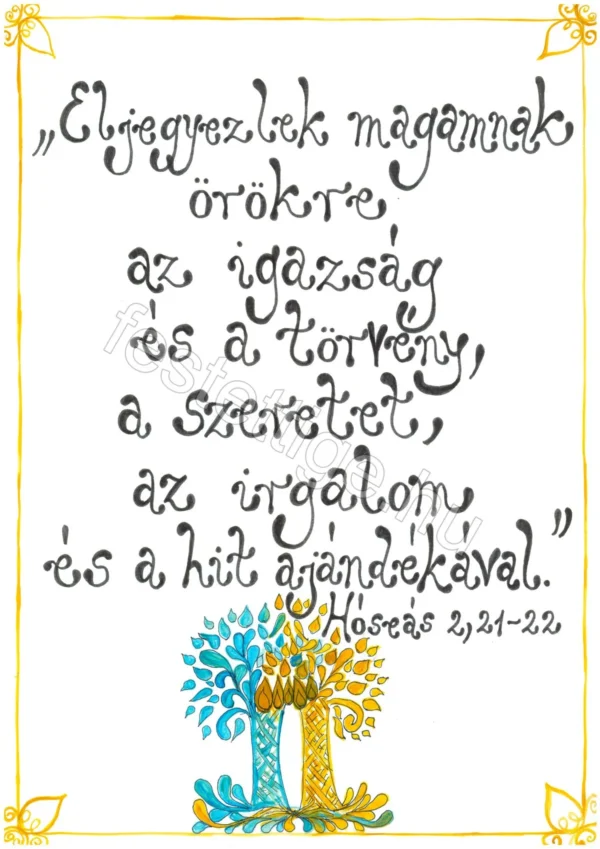 „Eljegyezlek magamnak
örökre
az igazság
és a törvény,
a szeretet,
az irgalom
és a hit ajándékával.”
Hóseás 2,21-22
festettige.hu